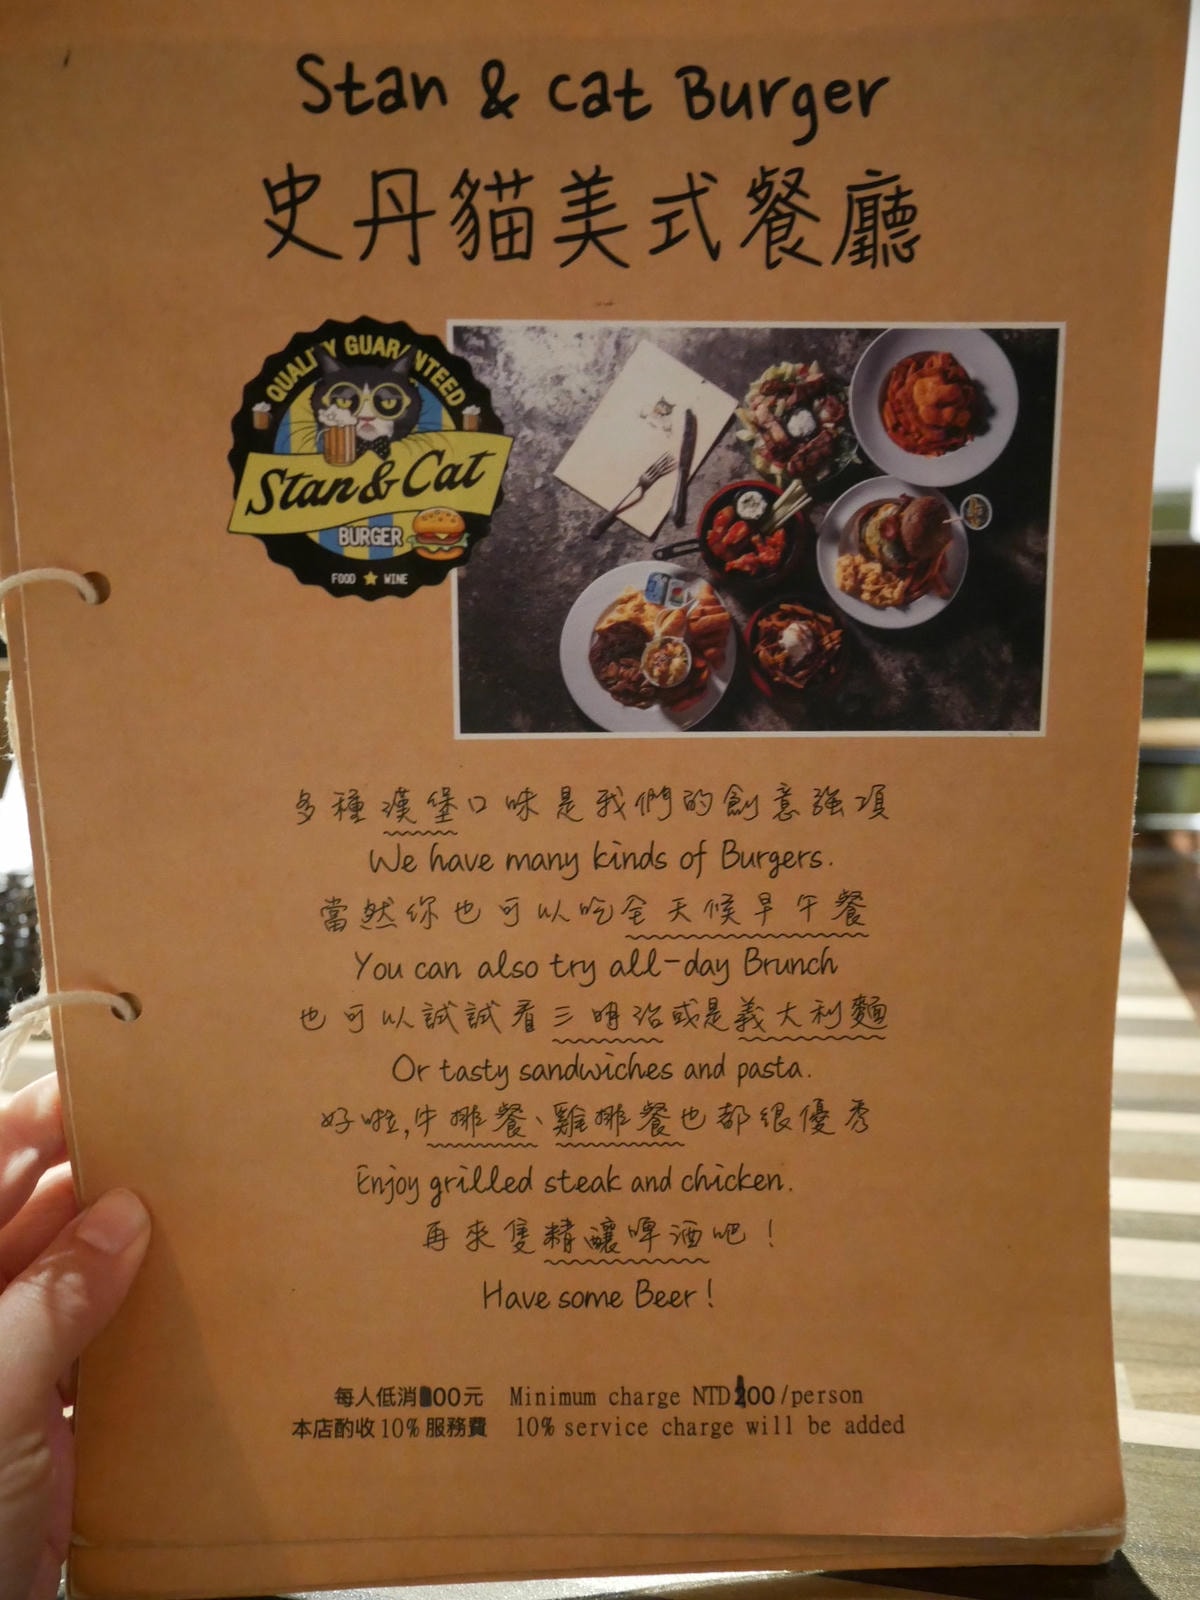 Stan & Cat Burger
史丹貓美式餐廳
QUALITY GUARANTEED
Stan & Cat
BURGER
FOOD ★ WINE
多種漢堡口味是我們的創意強項
We have many kinds of Burgers.
當然你也可以吃全天候早午餐
You can also try all-day Brunch
也可以試試看三明治或是義大利麵
Or tasty sandwiches and pasta.
好啦,牛排餐、雞排餐也都很優秀
Enjoy grilled steak and chicken.
再來隻精釀啤酒吧!
Have some Beer!
每人低消 00元 Minimum charge NTD 00/person
本店酌收10%服務費 10% service charge will be added